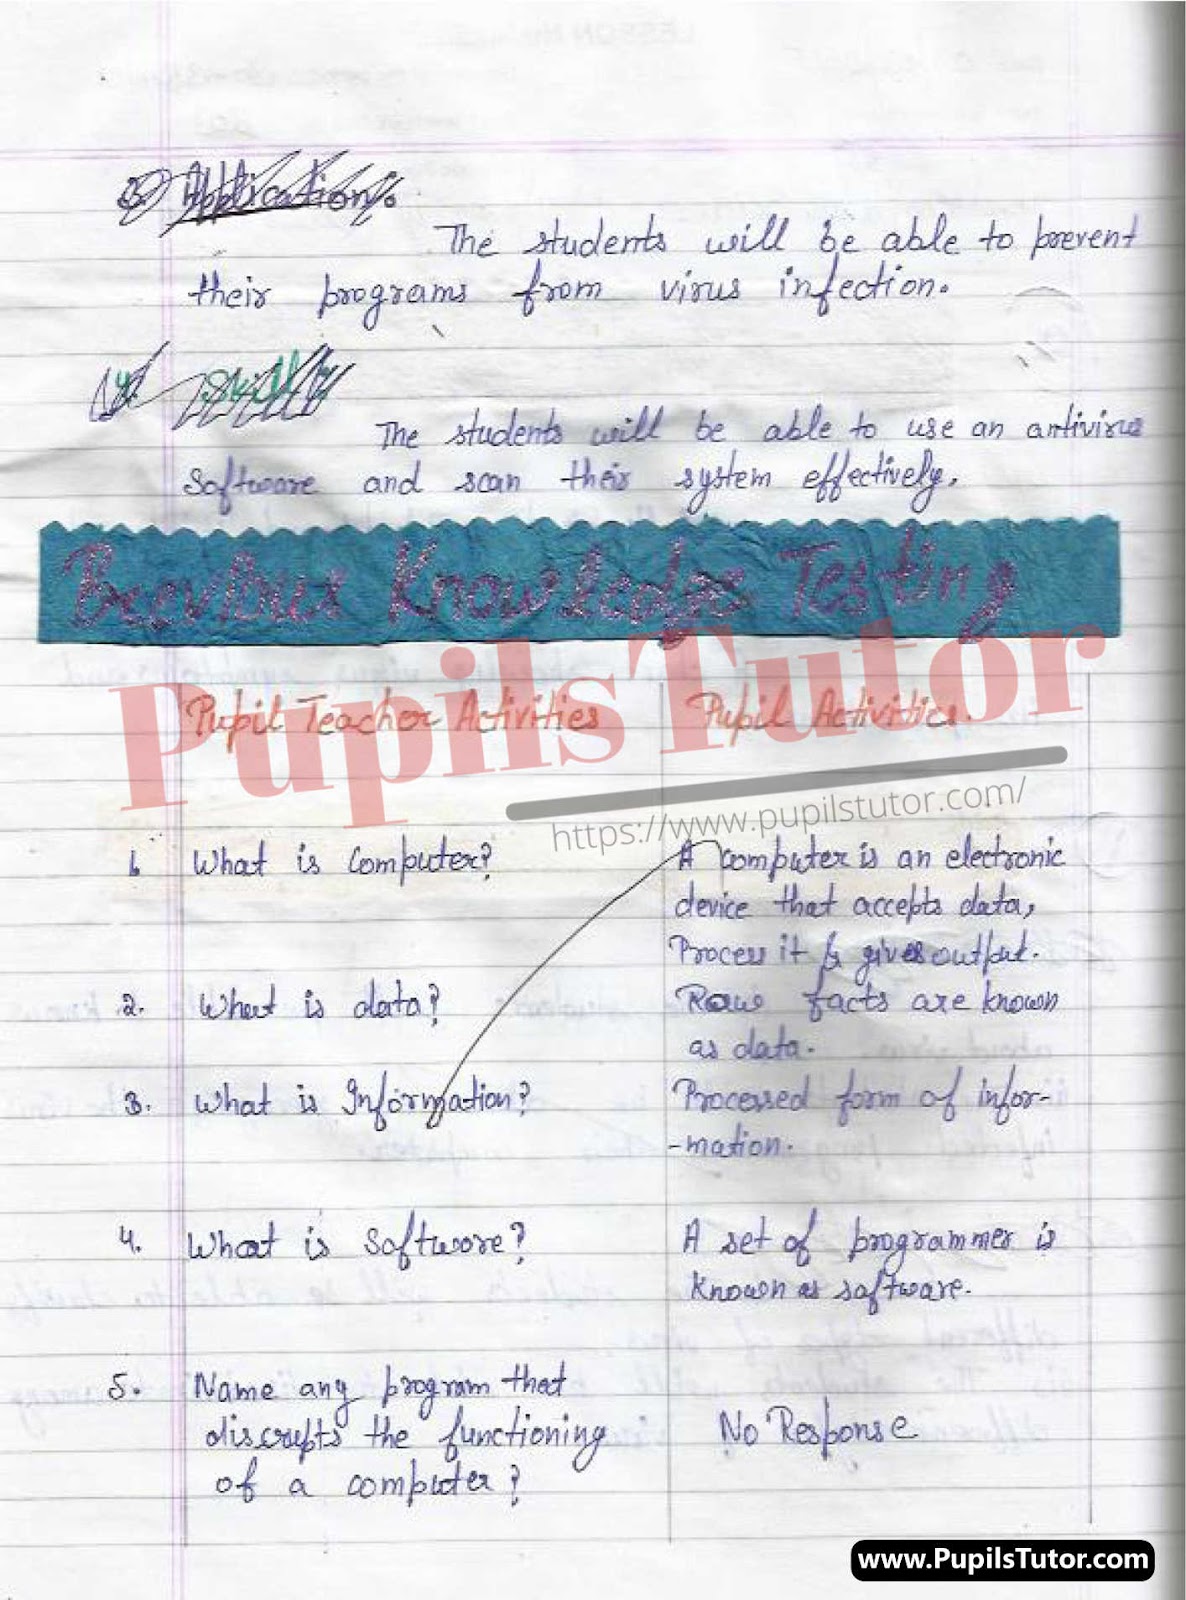 3) Application:
The students will be able to prevent
their programs from virus infection.
The students will be able to use an antivirus
Software and scan their system effectively.
Previous Knowledge Testing
PupilsTutor
Pupil Teacher Activities Pupil Activities.
https://www.pupilstutor.com/
1. What is Computer? A computer is an electronic
device that accepts data,
Process it & gives output.
2. What is data? Raw facts are known
as data.
3. What is Information? Processed form of infor-
-mation.
4. What is Software? A set of programmer is
known as software.
5. Name any program that
discrupts the functioning No Response
of a computer?
www.PupilsTutor.com